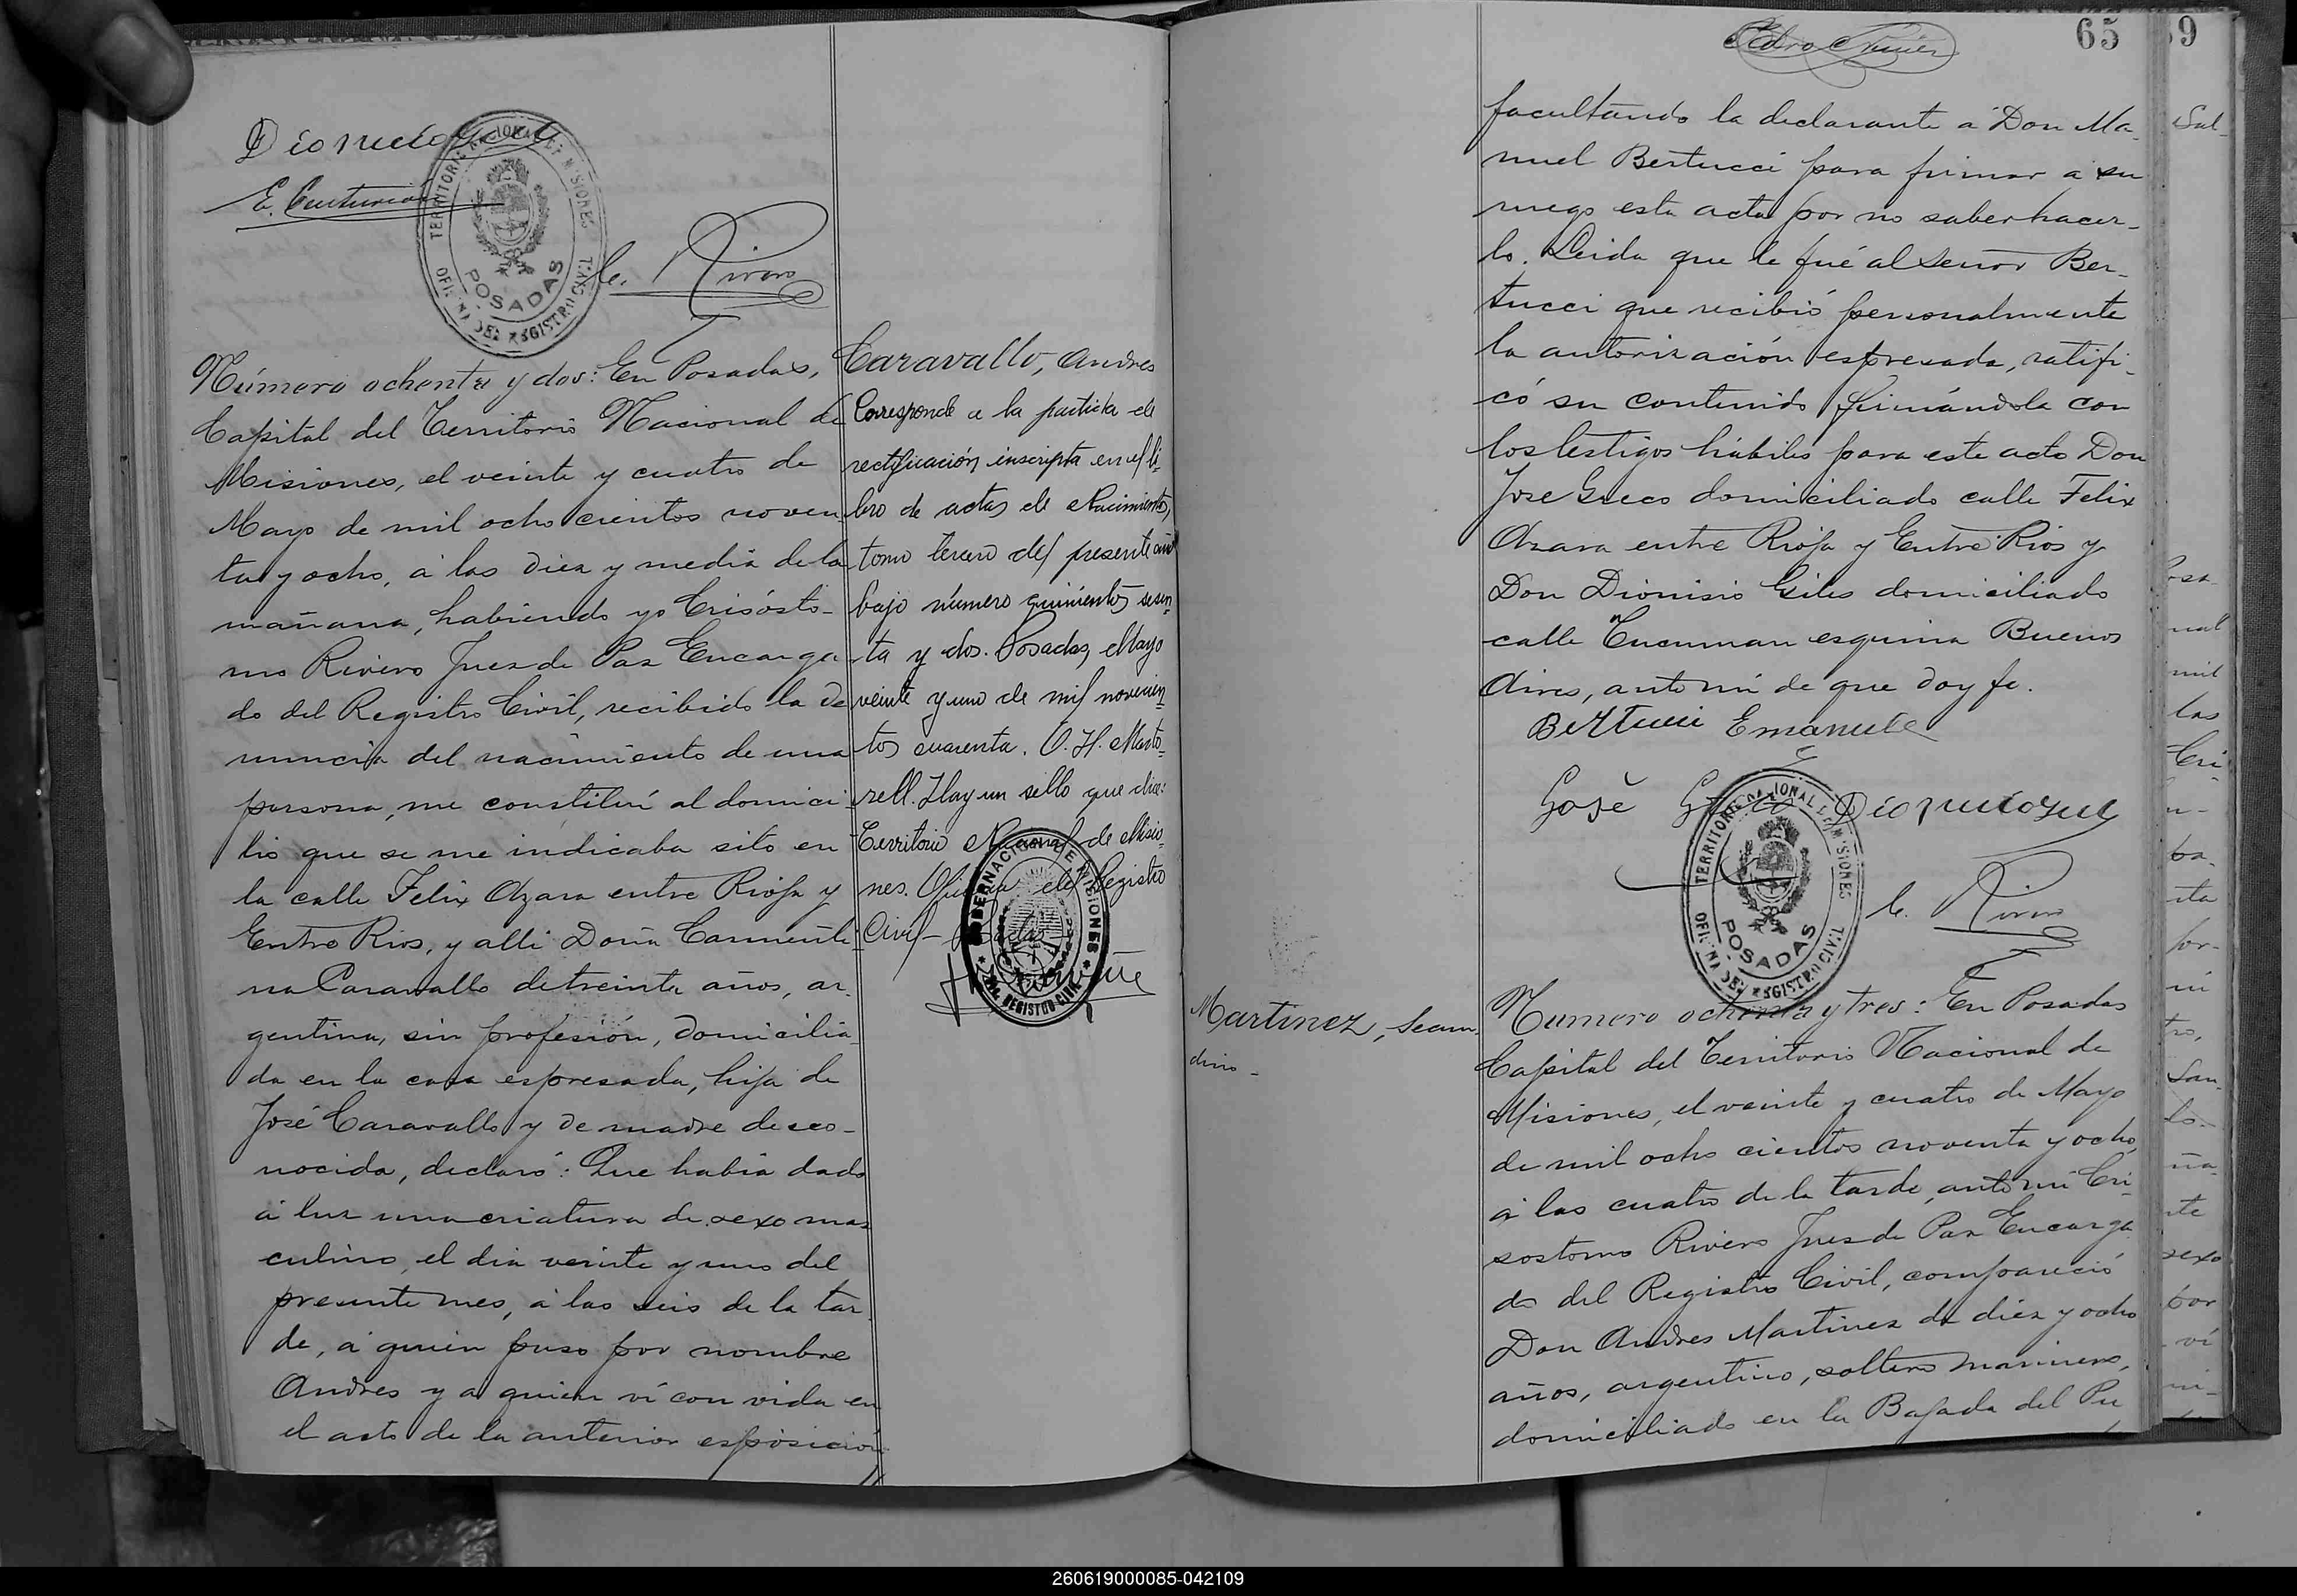 E. Centurión
TERRITORIO NACIONAL DE MISIONES
POSADAS
OFICINA DEL REGISTRO CIVIL
C. Rivero
Número ochenta y dos: En Posadas,
Capital del Territorio Nacional de
Misiones, el veinte y cuatro de
Mayo de mil ocho cientos noven
ta y ocho, á las diez y media de la
mañana, habiendo yo Crisósto-
mo Rivero Juez de Paz Encarga
do del Registro Civil, recibido la de
nuncia del nacimiento de una
persona, me constituí al domici
lio que se me indicaba sito en
la calle Felix Azara entre Rioja y
Entre Rios, y alli Doña Carmeli
na Caravallo de treinta años, ar-
gentina, sin profesión, domicilia
da en la casa espresada, hija de
José Caravallo y de madre desco-
nocida, declaró: Que había dado
á luz una criatura de sexo mas
culino, el dia veinte y uno del
presente mes, á las seis de la tar
de, á quien puso por nombre
Andres y a quien ví con vida en
el acto de la anterior esposición
Caravallo, Andres
Corresponde a la partida de
rectificación inscripta en el li-
bro de actas de Nacimientos,
tomo tercero del presente año
bajo número quinientos sesen
ta y dos. Posadas, Mayo
veinte y uno de mil novecien
tos cuarenta. O. H. Marto-
rell. Hay un sello que dice:
Territorio Nacional de Misio-
nes. Oficina del Registro
Civil - Posadas
GOBERNACION DE MISIONES
REGISTRO CIVIL
65
59
facultando la declarante á Don Ma-
nuel Bertucci para firmar á su
ruego esta acta por no saber hacer-
lo. Leida que le fué al Señor Ber-
tucci que recibió personalmente
la autorización espresada, ratifi-
có su contenido firmándola con
los testigos hábiles para este acto Don
Jose Greco domiciliado calle Felix
Azara entre Rioja y Entre Rios y
Don Dionisio Giles domiciliado
calle Tucuman esquina Buenos
Aires, ante mí de que doy fe.
Bertucci Emanuele
José Greco
TERRITORIO NACIONAL DE MISIONES
POSADAS
OFICINA DEL REGISTRO CIVIL
C. Rivero
Martinez, Secun
dino -
Numero ochenta y tres: En Posadas
Capital del Territorio Nacional de
Misiones, el veinte y cuatro de Mayo
de mil ocho cientos noventa y ocho,
á las cuatro de la tarde, ante mí Cri
sostomo Rivero Juez de Paz Encarga
do del Registro Civil, compareció
Don Andres Martinez de diez y ocho
años, argentino, soltero marinero,
domiciliado en la Bajada del Pu
260619000085-042109